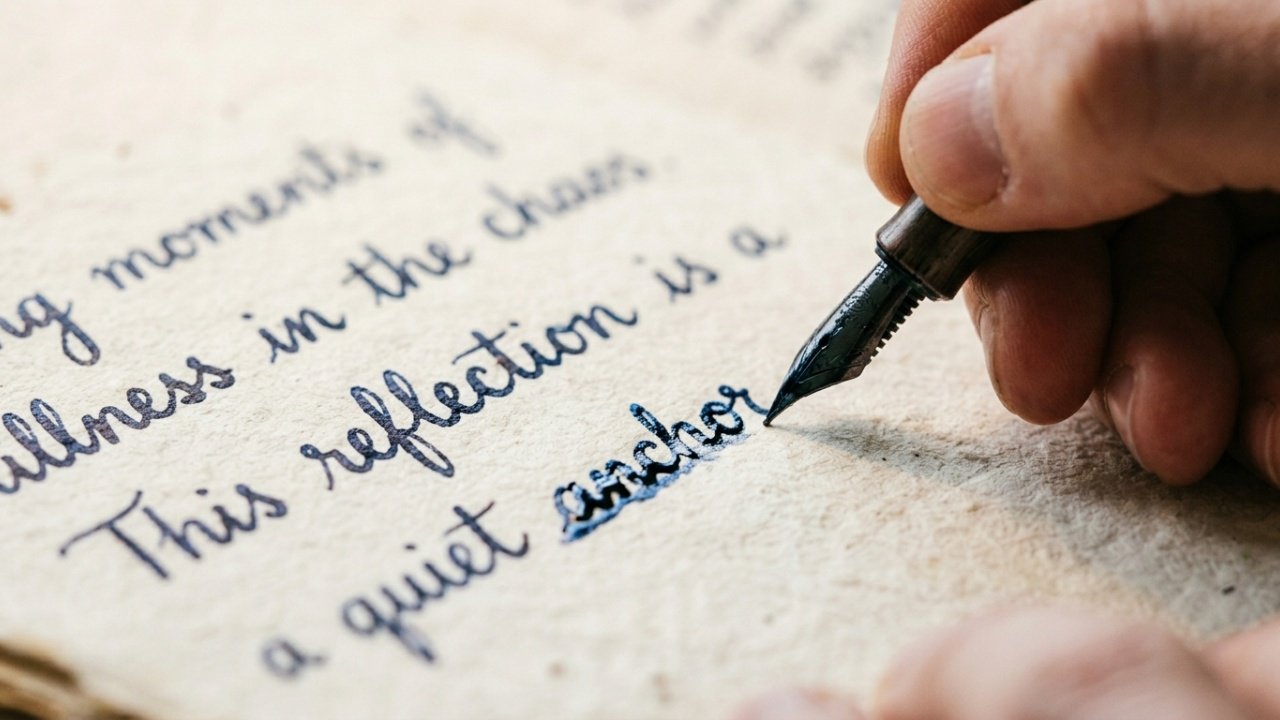 ng moments of
ullness in the chaos.
This reflection is a
a quiet anchor